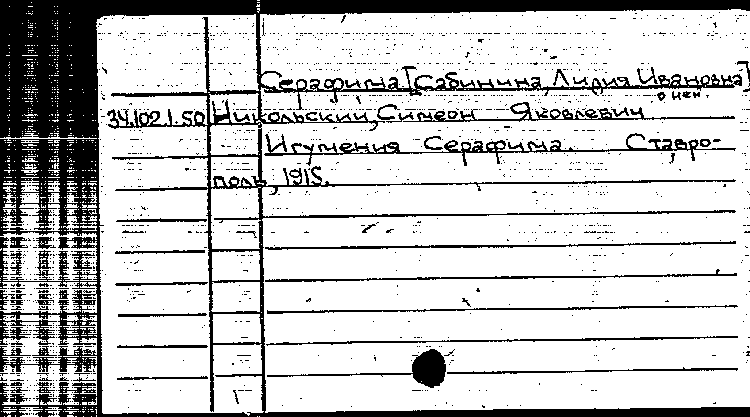 Серафима [Сабинина, Лидия Ивановна]
о ней.
34.102.1.50 Никольский, Симеон Яковлевич
Игумения Серафима. Ставро-
поль, 1915.